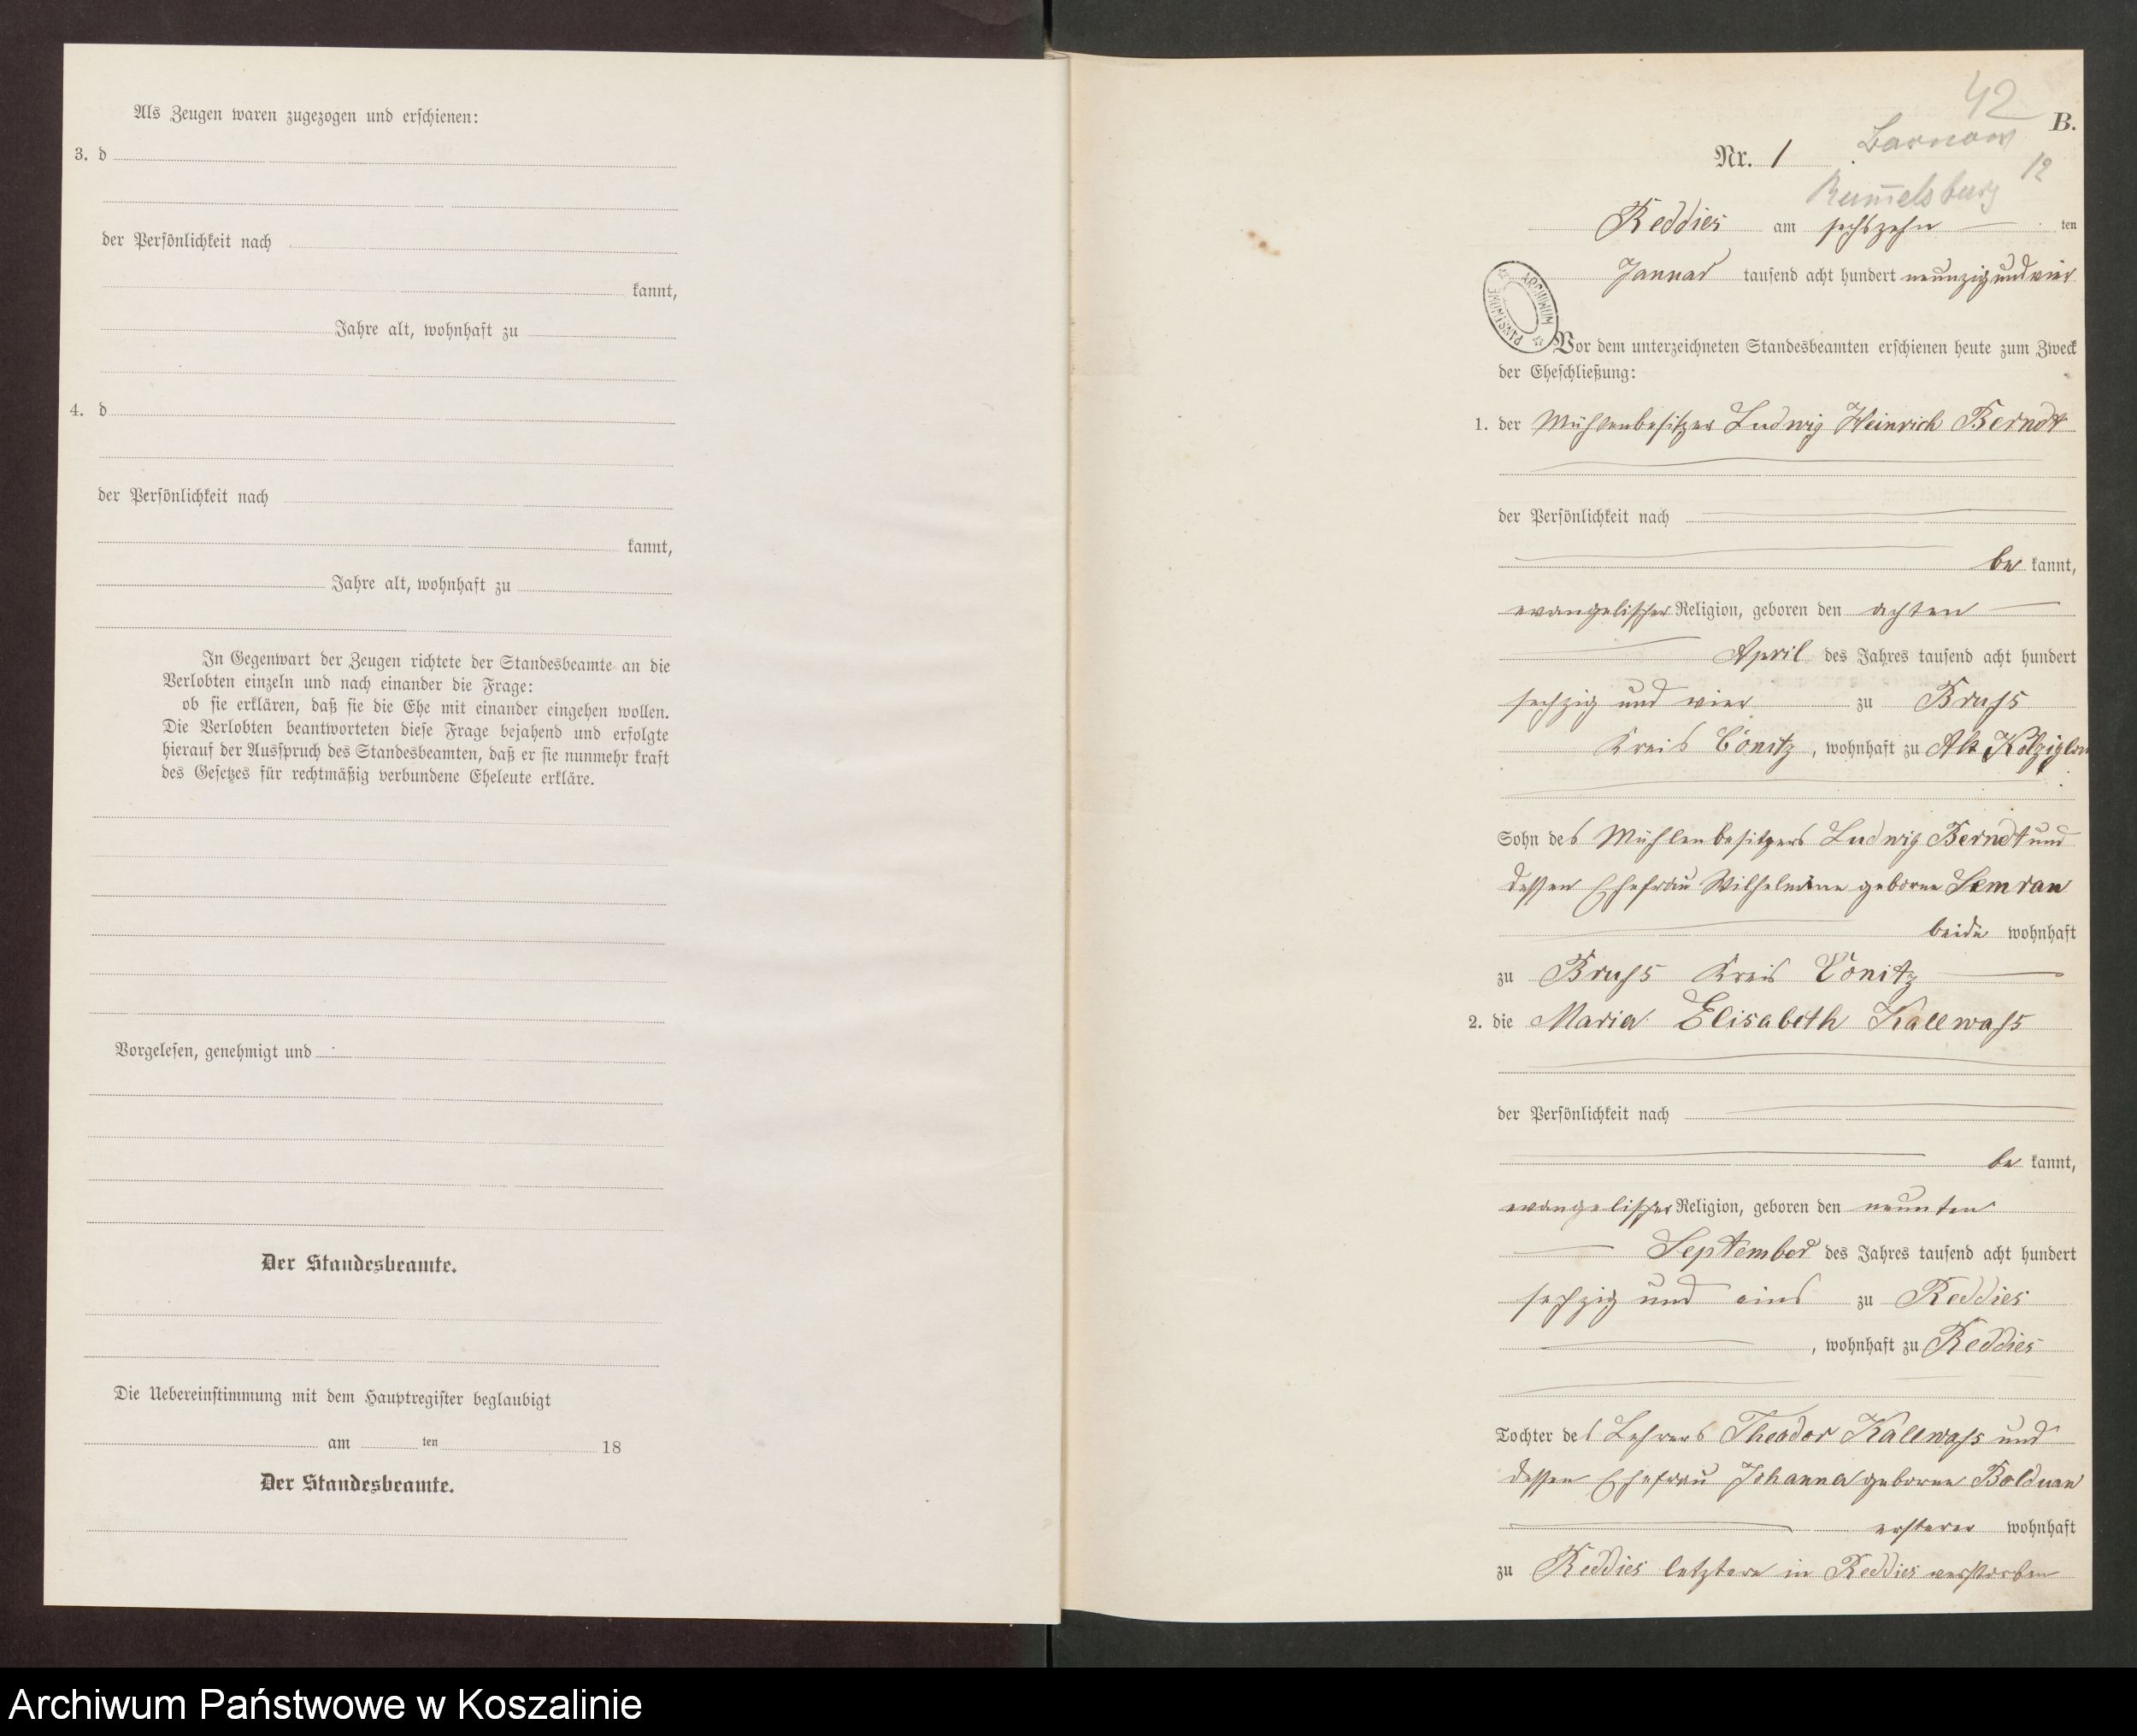 Als Zeugen waren zugezogen und erschienen:
3. d
der Persönlichkeit nach
kannt,
Jahre alt, wohnhaft zu
4. d
der Persönlichkeit nach
kannt,
Jahre alt, wohnhaft zu
In Gegenwart der Zeugen richtete der Standesbeamte an die
Verlobten einzeln und nach einander die Frage:
ob sie erklären, daß sie die Ehe mit einander eingehen wollen.
Die Verlobten beantworteten diese Frage bejahend und erfolgte
hierauf der Ausspruch des Standesbeamten, daß er sie nunmehr kraft
des Gesetzes für rechtmäßig verbundene Eheleute erkläre.
Vorgelesen, genehmigt und
Der Standesbeamte.
Die Uebereinstimmung mit dem Hauptregister beglaubigt
am ten 18
Der Standesbeamte.
42
B.
Barnow
Nr. 1
12
Rummelsburg
Reddies am sechszehn ten
Januar tausend acht hundert neunzig und vier
ARCHIWUM PAŃSTWOWE
Vor dem unterzeichneten Standesbeamten erschienen heute zum Zweck
der Eheschließung:
1. der Mühlenbesitzer Ludwig Heinrich Berndt
der Persönlichkeit nach
be kannt,
evangelischer Religion, geboren den achten
April des Jahres tausend acht hundert
sechzig und vier zu Bruß
Kreis Conitz, wohnhaft zu Alt Kolziglow
Sohn des Mühlenbesitzers Ludwig Berndt und
dessen Ehefrau Wilhelmine geborne Semrau
beide wohnhaft
zu Bruß Kreis Conitz
2. die Maria Elisabeth Kallwaß
der Persönlichkeit nach
be kannt,
evangelischer Religion, geboren den neunten
September des Jahres tausend acht hundert
sechzig und eins zu Reddies
, wohnhaft zu Reddies
Tochter des Lehrers Theodor Kallwaß und
dessen Ehefrau Johanna geborne Bolduan
ersterer wohnhaft
zu Reddies letztere in Reddies verstorben
Archiwum Państwowe w Koszalinie